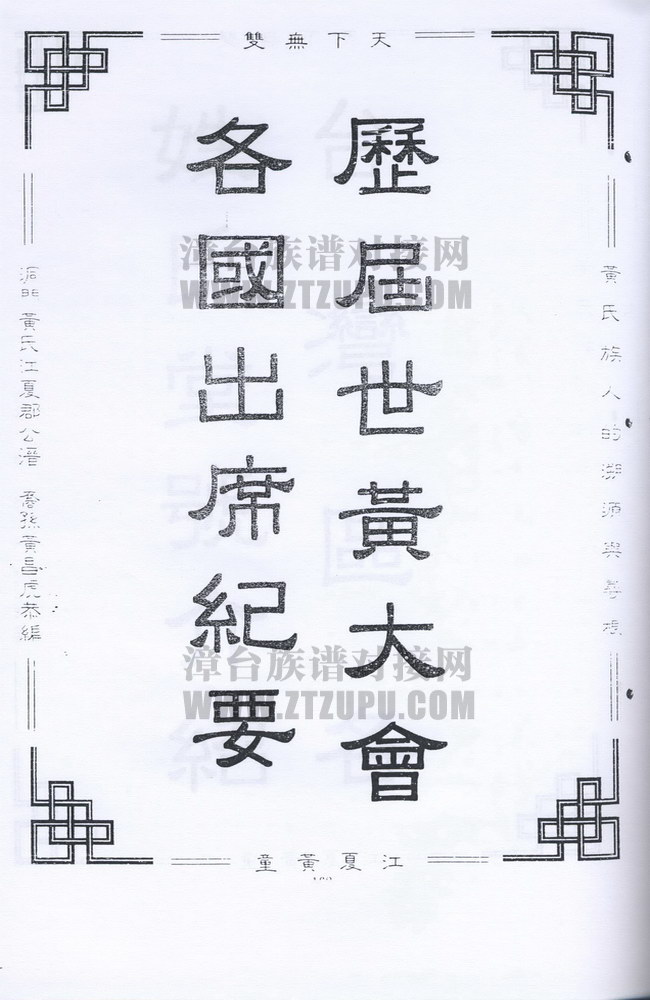 天下無雙
歷屆世黃大會
各國出席紀要
黃氏族人的溯源與尋根
黃氏江夏郡公潛 裔孫黃昌虎恭編
江夏黃童
漳台族谱对接网
WWW.ZTZUPU.COM
漳台族谱对接网
WWW.ZTZUPU.COM